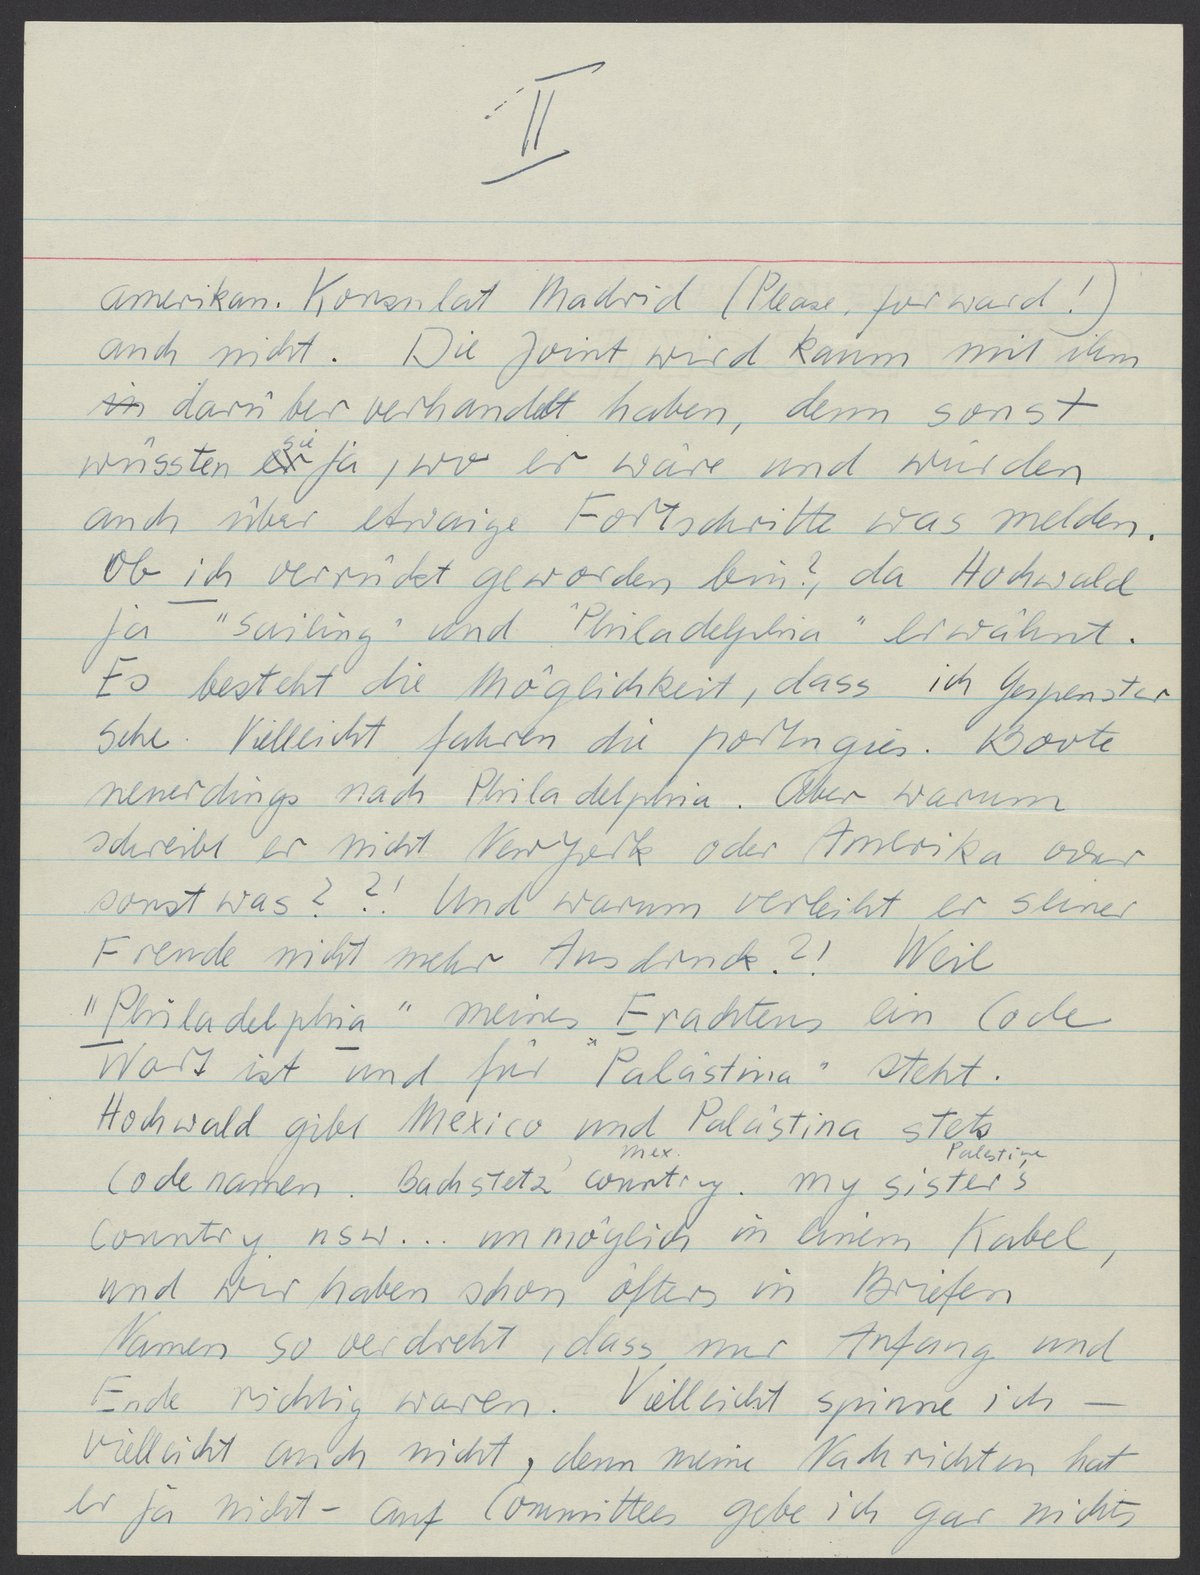 II
amerikan. Konsulat Madrid (Please, forward!)
auch nicht. Die Joint wird kaum mit ihm
in darüber verhandelt haben, denn sonst
wüssten er sie ja, wo er wäre und würden
auch über etwaige Fortschritte was melden.
Ob ich verrückt geworden bin?, da Hochwald
ja "sailing" und "Philadelphia" erwähnt.
Es besteht die Möglichkeit, dass ich Gespenster
sehe. Vielleicht fahren die portugies. Boote
neuerdings nach Philadelphia. Aber warum
schreibt er nicht New York oder Amerika oder
sonst was? ?! Und warum verleiht er seiner
Freude nicht mehr Ausdruck?! Weil
"Philadelphia" meines Erachtens ein Code
Wort ist und für "Palästina" steht.
Hochwald gibt Mexico und Palästina stets
Mex. Palestine
Codenamen. Bachstetz' country. my sister's
Country usw... unmöglich in einem Kabel,
und wir haben schon öfters in Briefen
Namen so verdreht, dass nur Anfang und
Ende richtig waren. Vielleicht spinne ich –
vielleicht auch nicht, denn meine Nachrichten hat
er ja nicht – auf Committees gebe ich gar nichts